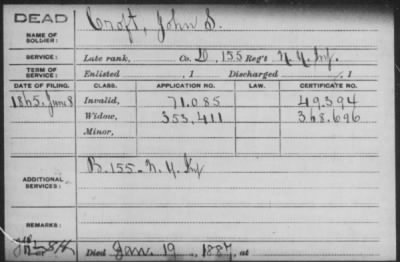 DEAD
NAME OF SOLDIER: Croft, John S.
SERVICE: Late rank, Co. D, 155 Reg't N.Y. Inf.
TERM OF SERVICE: Enlisted , 1 Discharged , 1
DATE OF FILING. CLASS. APPLICATION NO. LAW. CERTIFICATE NO.
1865, June 8 Invalid, 71.085 49.394
Widow, 353,411 368.696
Minor,
ADDITIONAL SERVICES: B. 155. N.Y. Inf
REMARKS:
Died Jan. 19, 1887, at